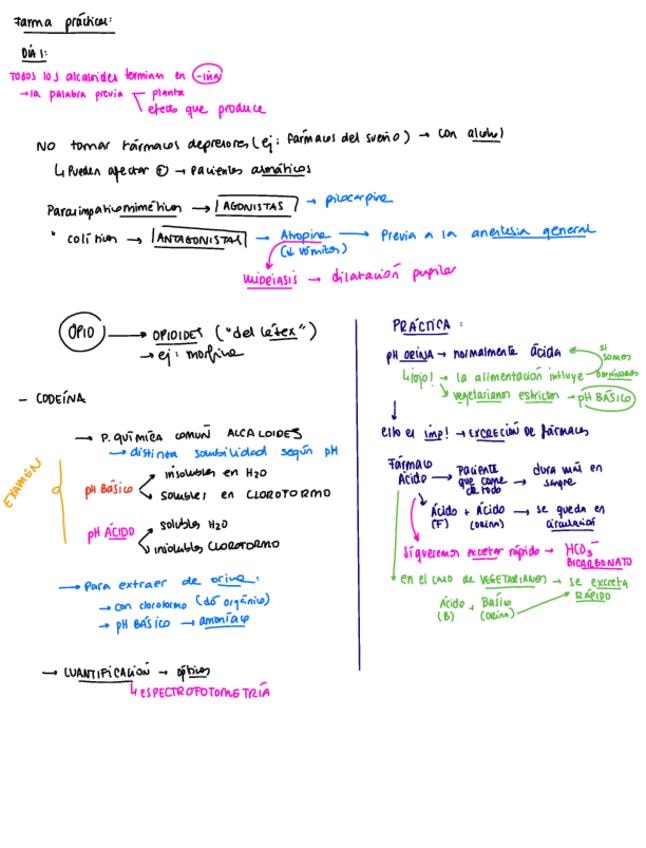 Farma práctica:
DÍA 1:
Todos los alcaloides terminan en -ina
→ la palabra previa planta
efecto que produce
NO tomar fármacos depresores (ej: fármacos del sueño) → con alcohol
↳ Pueden afectar ⊕ → pacientes asmáticos
Parasimpaticomiméticos → AGONISTAS → pilocarpina
" colíticos → ANTAGONISTAS → Atropina → Previa a la anestesia general
(↓ vómitos)
MIDRIASIS → dilatación pupilar
OPIO → OPIOIDES ("del látex")
→ ej: morfina
- CODEÍNA
→ P. QUÍMICA COMÚN ALCALOIDES
→ distinta solubilidad según pH
EXAMEN
pH BÁSICO
insolubles en H2O
solubles en CLOROFORMO
pH ÁCIDO
solubles H2O
insolubles CLOROFORMO
→ Para extraer de orina:
→ con cloroformo (dó orgánico)
→ pH BÁSICO → amoníaco
→ CUANTIFICACIÓN → ópticos
↳ ESPECTROFOTOMETRÍA
PRÁCTICA:
pH ORINA → normalmente ácida
si somos omnívoros
↳ ¡ojo! → la alimentación influye
↘ vegetarianos estrictos → pH BÁSICO
esto es imp! → EXCRECIÓN de fármacos
Fármaco Ácido → Paciente que come de todo → dura más en sangre
Ácido + Ácido → se queda en circulación
(F) (orina)
Si queremos excretar rápido → HCO3⁻
BICARBONATO
→ en el caso de VEGETARIANOS → se excreta RÁPIDO
Ácido + Básico
(B) (orina)